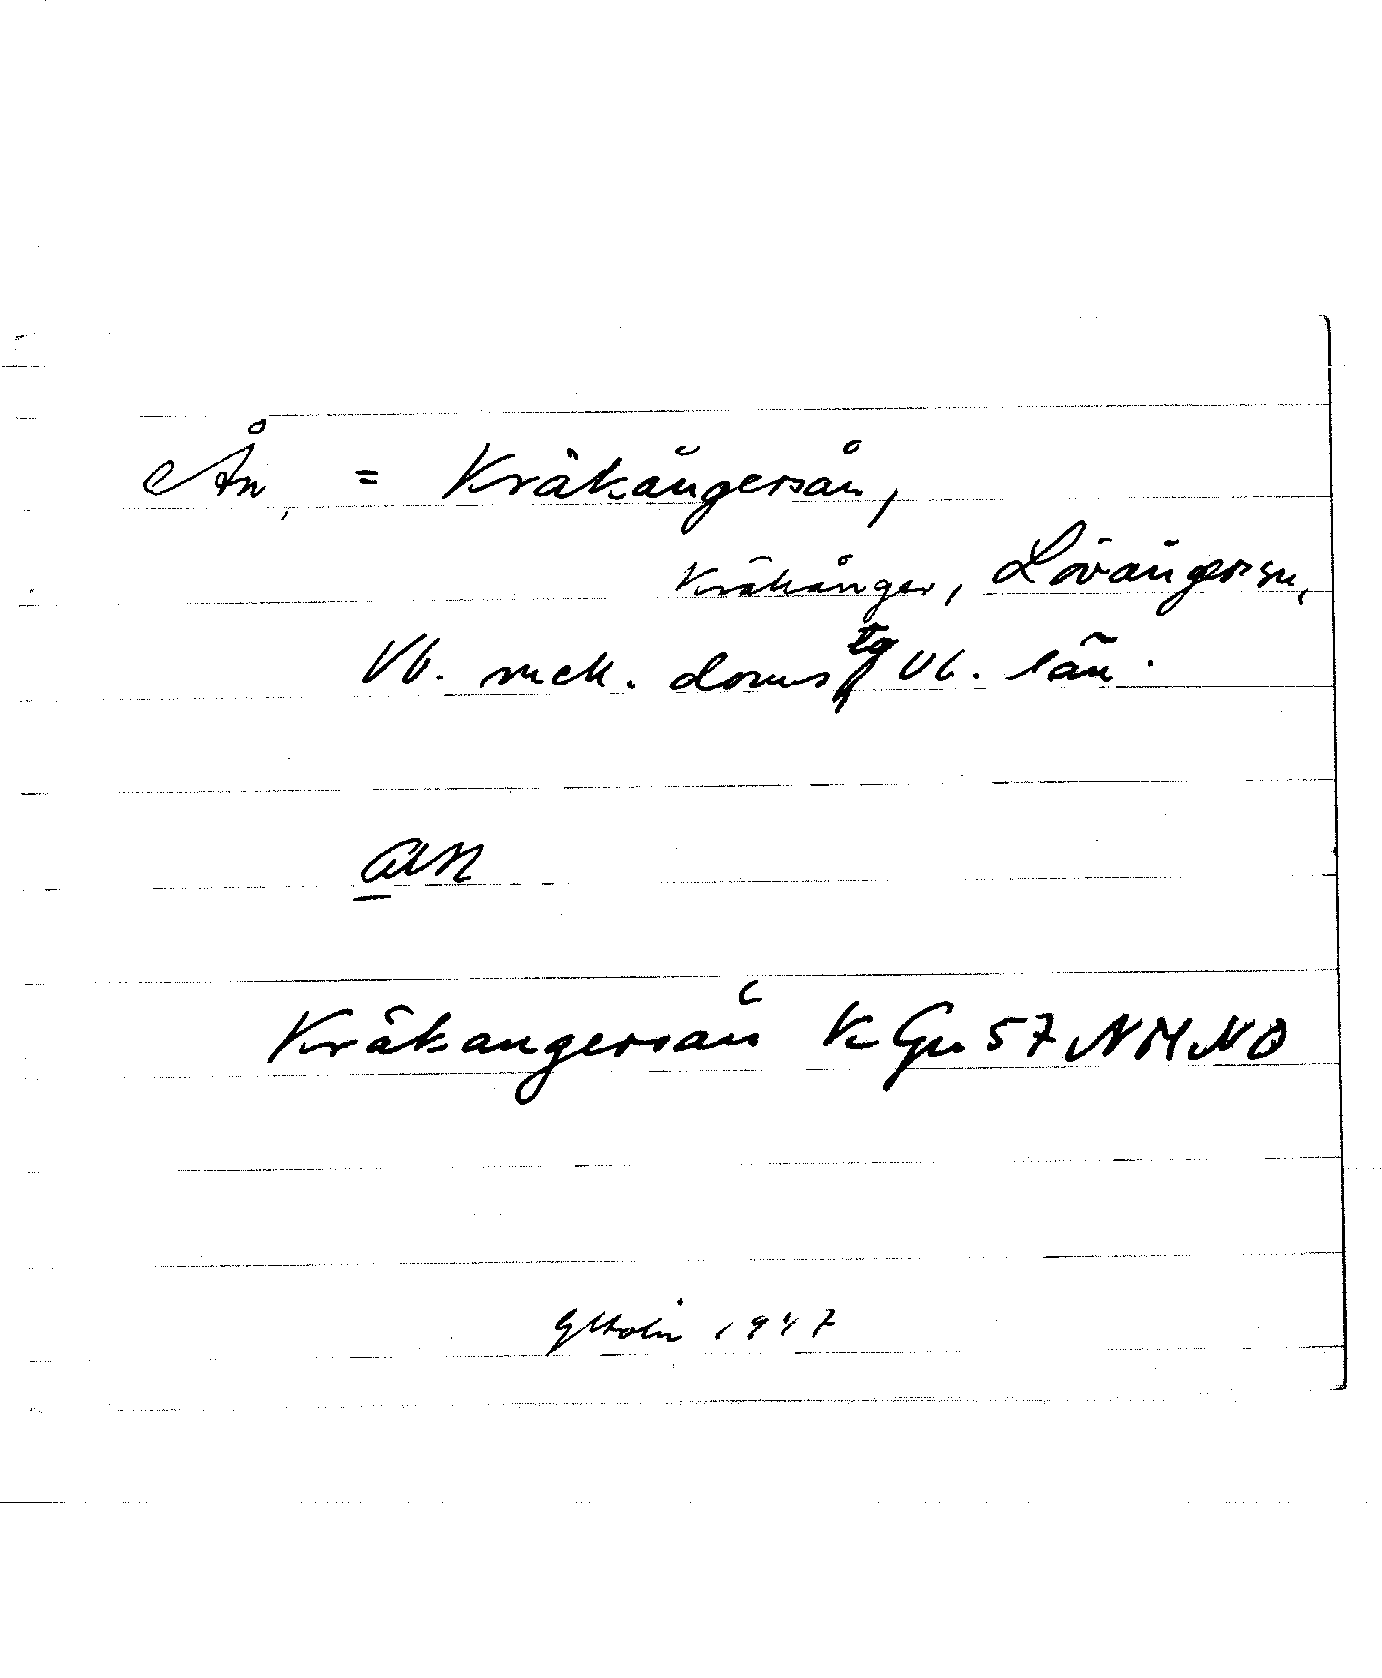 Ån, = Kräkångersån,
Kräkånger, Lövångers sn,
Vb. mek. doms tg Vb. län.
Kräkangersån K Gen 57 NMNO
G Holm 1947